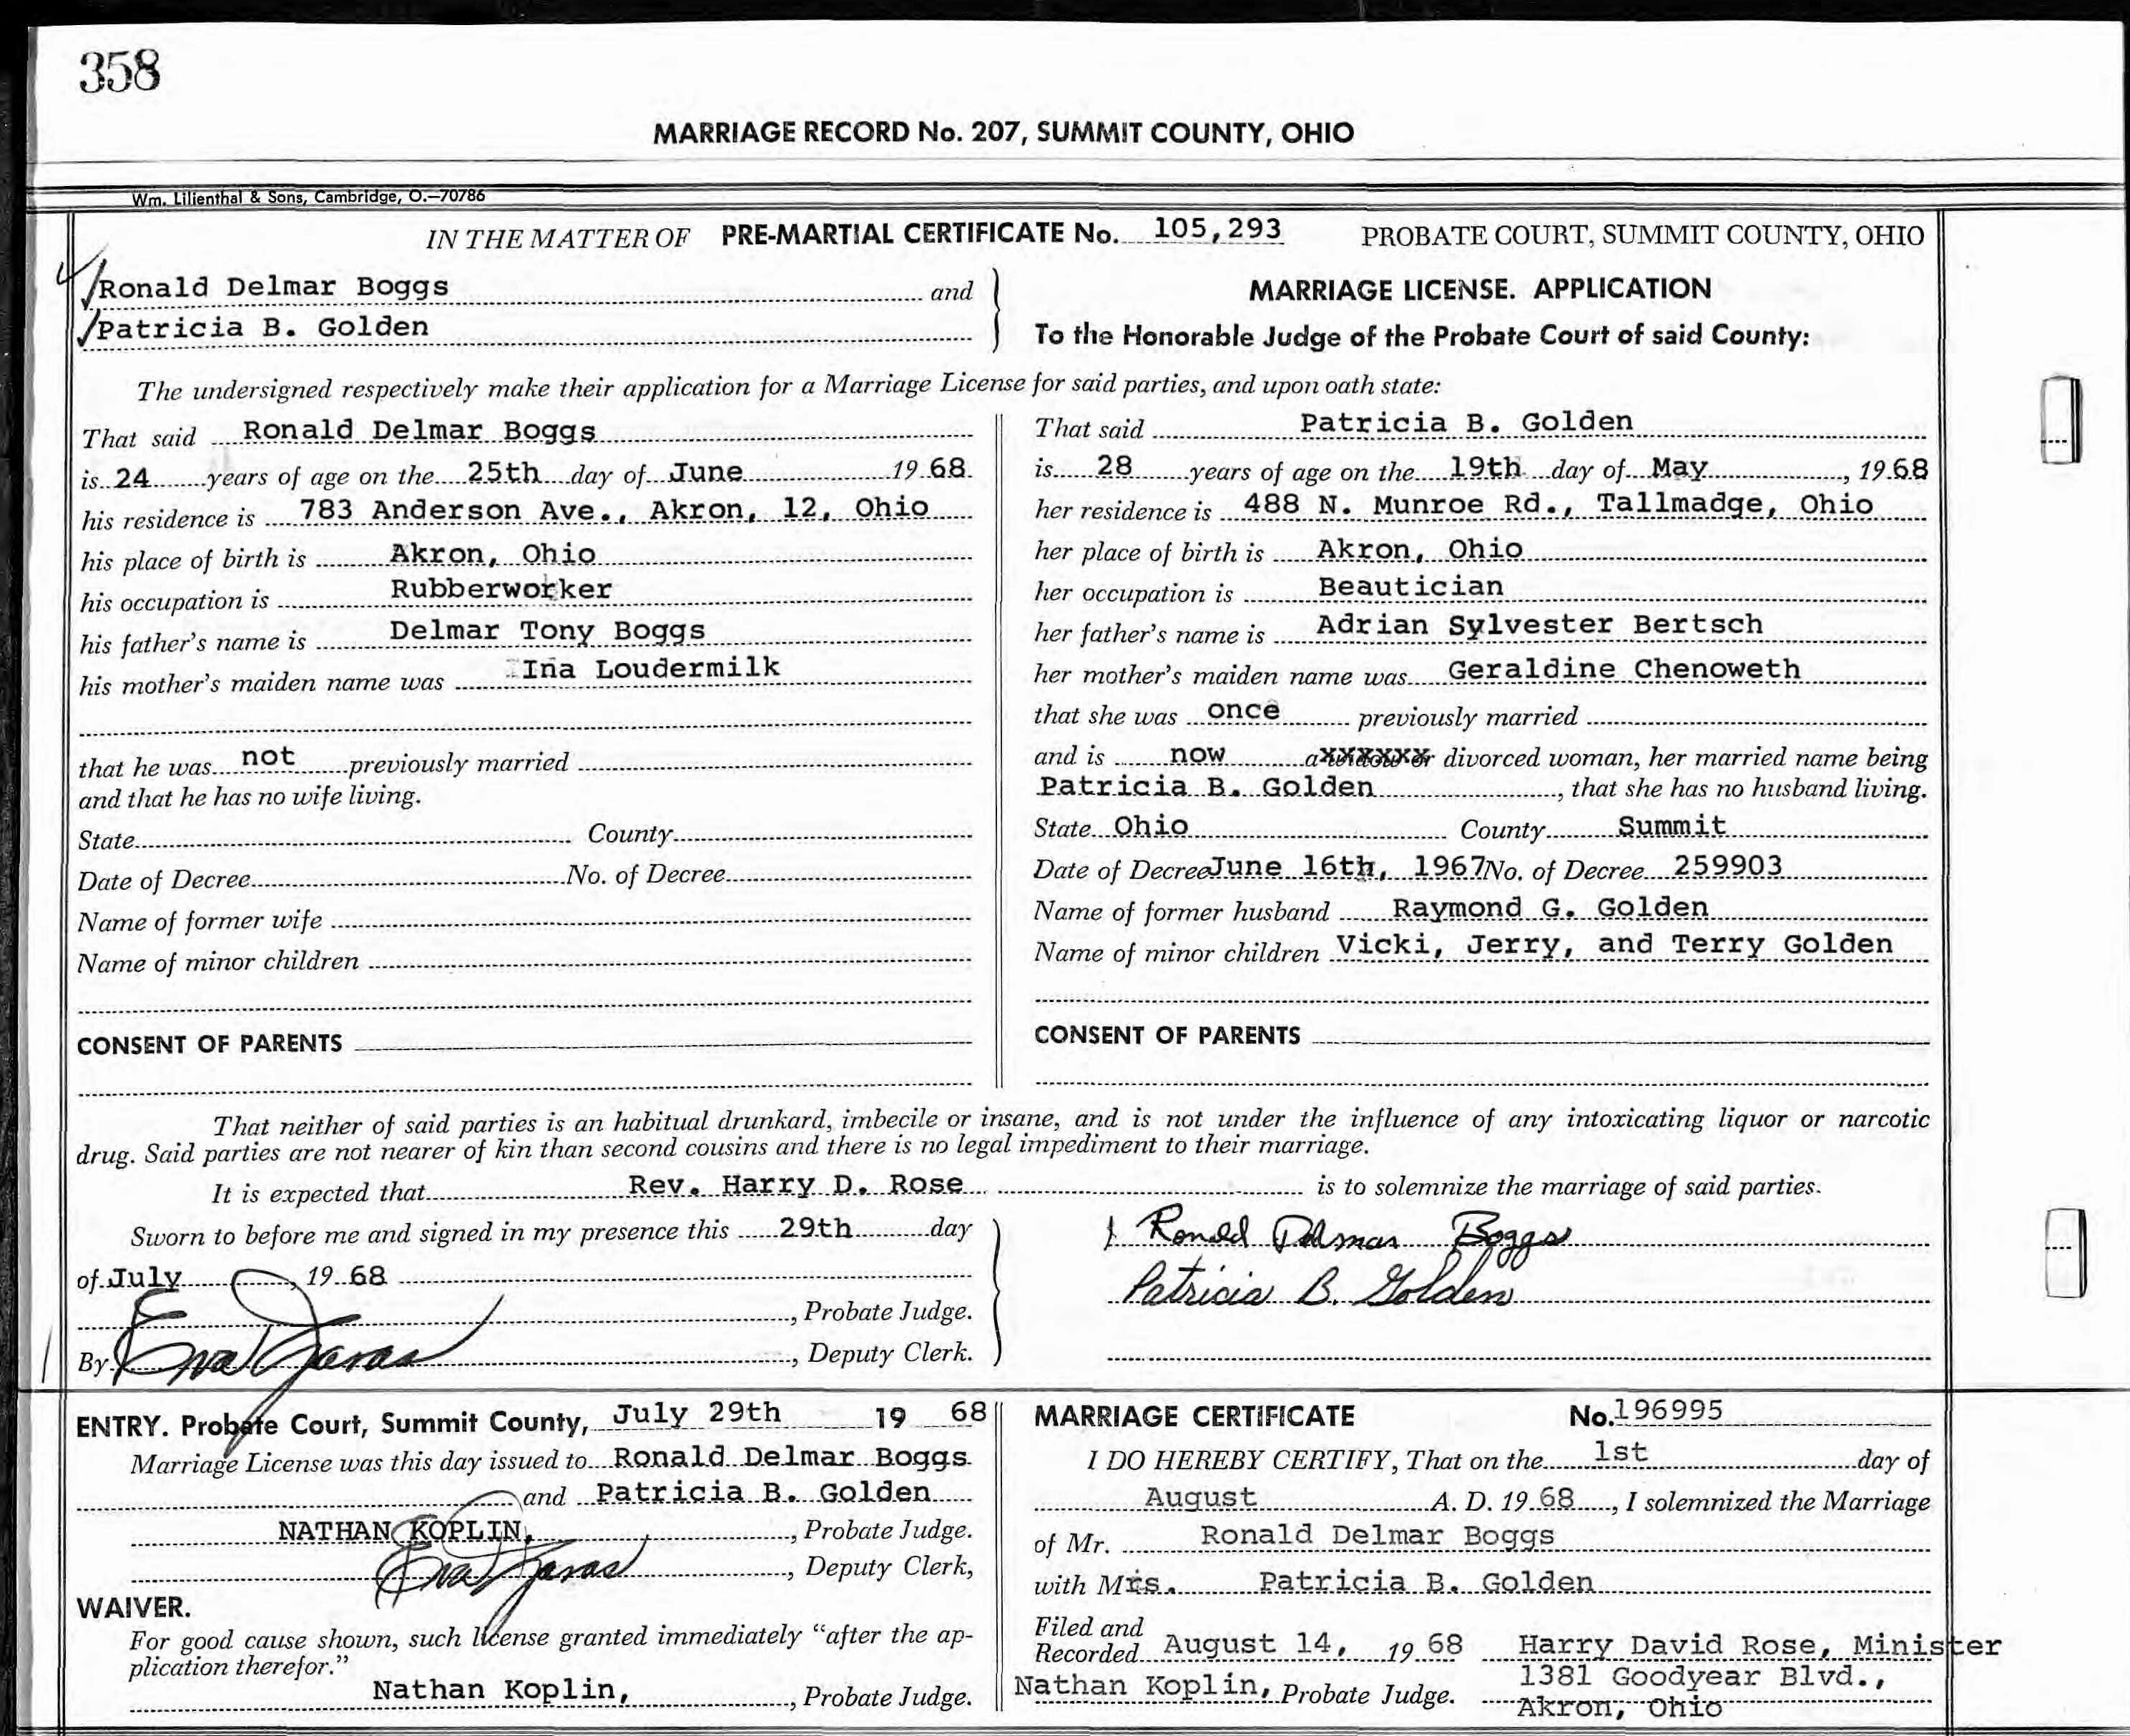 358
MARRIAGE RECORD No. 207, SUMMIT COUNTY, OHIO
Wm. Lilienthal & Sons, Cambridge, O.—70786
IN THE MATTER OF PRE-MARTIAL CERTIFICATE No. 105,293 PROBATE COURT, SUMMIT COUNTY, OHIO
Ronald Delmar Boggs and
Patricia B. Golden
MARRIAGE LICENSE. APPLICATION
To the Honorable Judge of the Probate Court of said County:
The undersigned respectively make their application for a Marriage License for said parties, and upon oath state:
That said Ronald Delmar Boggs
is 24 years of age on the 25th day of June 19 68
his residence is 783 Anderson Ave., Akron, 12, Ohio
his place of birth is Akron, Ohio
his occupation is Rubberworker
his father's name is Delmar Tony Boggs
his mother's maiden name was Ina Loudermilk
that he was not previously married
and that he has no wife living.
State County
Date of Decree No. of Decree
Name of former wife
Name of minor children
CONSENT OF PARENTS
That said Patricia B. Golden
is 28 years of age on the 19th day of May, 19 68
her residence is 488 N. Munroe Rd., Tallmadge, Ohio
her place of birth is Akron, Ohio
her occupation is Beautician
her father's name is Adrian Sylvester Bertsch
her mother's maiden name was Geraldine Chenoweth
that she was once previously married
and is now a xxxxxxx divorced woman, her married name being
Patricia B. Golden, that she has no husband living.
State Ohio County Summit
Date of Decree June 16th, 1967 No. of Decree 259903
Name of former husband Raymond G. Golden
Name of minor children Vicki, Jerry, and Terry Golden
CONSENT OF PARENTS
That neither of said parties is an habitual drunkard, imbecile or insane, and is not under the influence of any intoxicating liquor or narcotic
drug. Said parties are not nearer of kin than second cousins and there is no legal impediment to their marriage.
It is expected that Rev. Harry D. Rose is to solemnize the marriage of said parties.
Sworn to before me and signed in my presence this 29th day
of July, 19 68
, Probate Judge.
By Eva , Deputy Clerk.
Ronald Delmar Boggs
Patricia B. Golden
ENTRY. Probate Court, Summit County, July 29th 19 68
Marriage License was this day issued to Ronald Delmar Boggs
and Patricia B. Golden
NATHAN KOPLIN, , Probate Judge.
Eva , Deputy Clerk,
WAIVER.
For good cause shown, such license granted immediately "after the ap-
plication therefor."
Nathan Koplin, , Probate Judge.
MARRIAGE CERTIFICATE No. 196995
I DO HEREBY CERTIFY, That on the 1st day of
August A. D. 19 68, I solemnized the Marriage
of Mr. Ronald Delmar Boggs
with Mrs. Patricia B. Golden
Filed and
Recorded August 14, 19 68 Harry David Rose, Minister
1381 Goodyear Blvd.,
Nathan Koplin, Probate Judge. Akron, Ohio